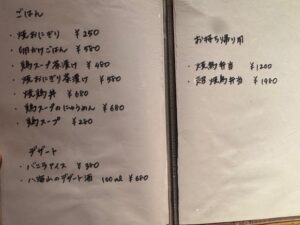 ごはん
・焼おにぎり ￥250
・卵かけごはん ￥580
・鶏スープ茶漬け ￥480
・焼おにぎり茶漬け ￥580
・焼鶏丼 ￥680
・鶏スープのにゅうめん ￥680
・鶏スープ ￥280
デザート
・バニラアイス ￥380
・八海山のデザート酒 100ml ￥680
お持ち帰り用
・焼鳥弁当 ￥1200
・超焼鳥弁当 ￥1980